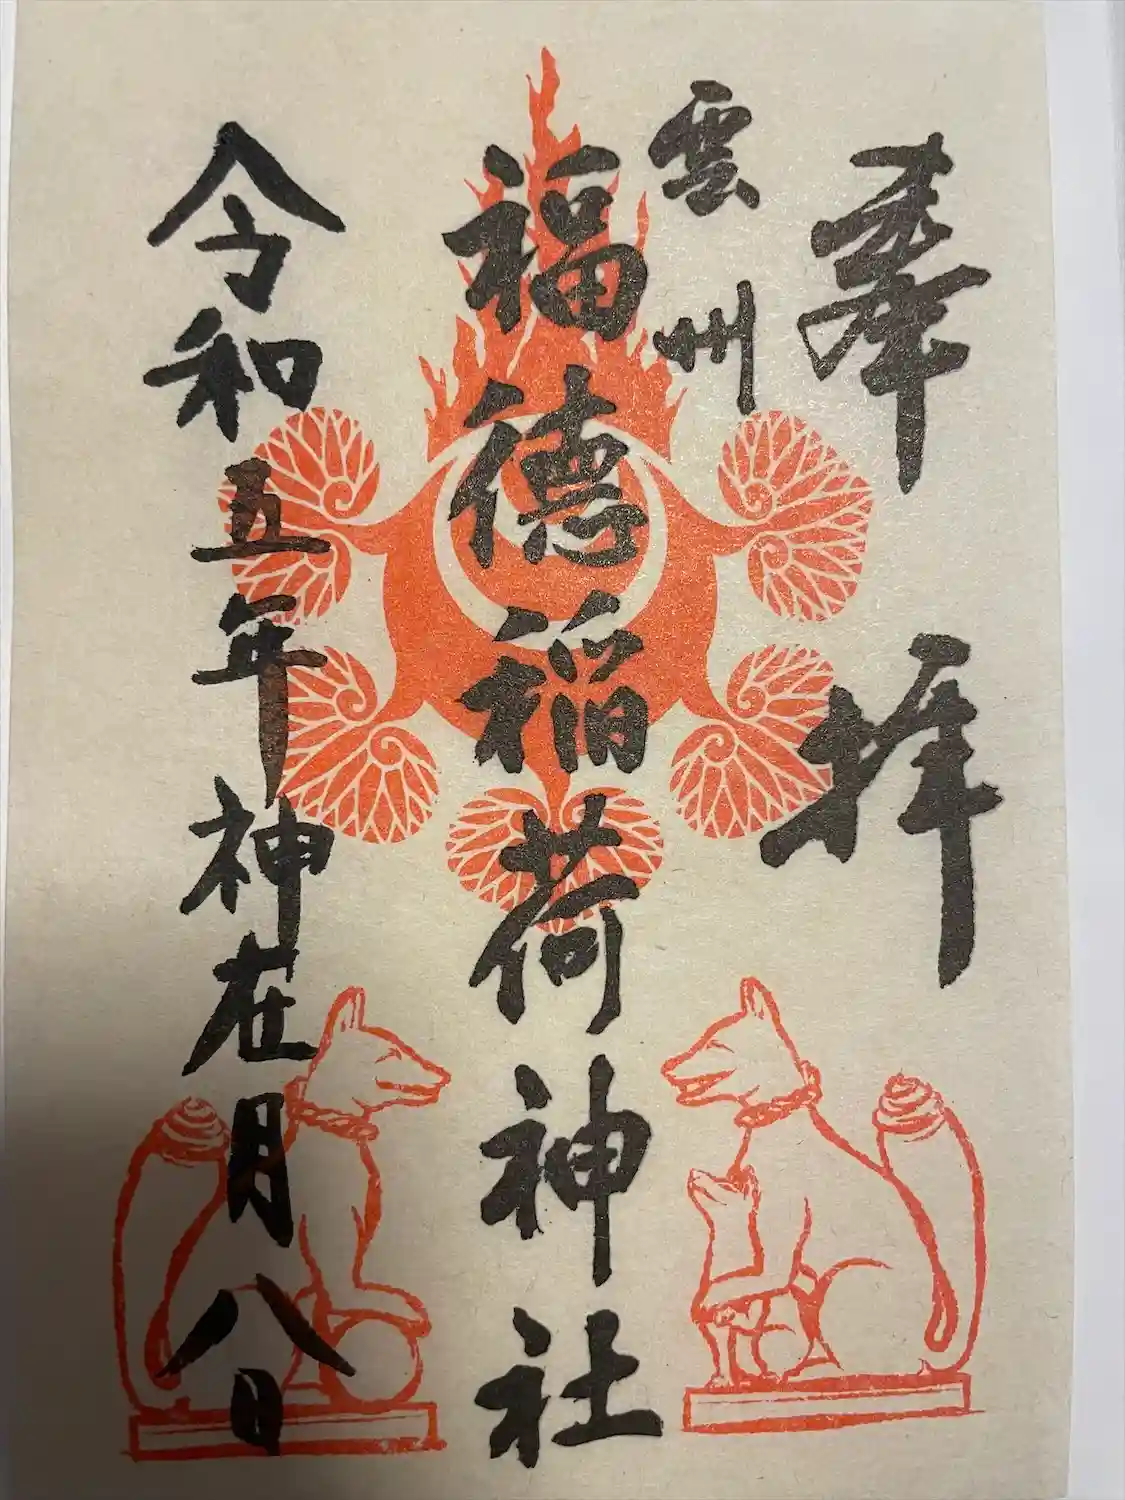 奉拝
雲州
福徳稲荷神社
令和五年神在月八日